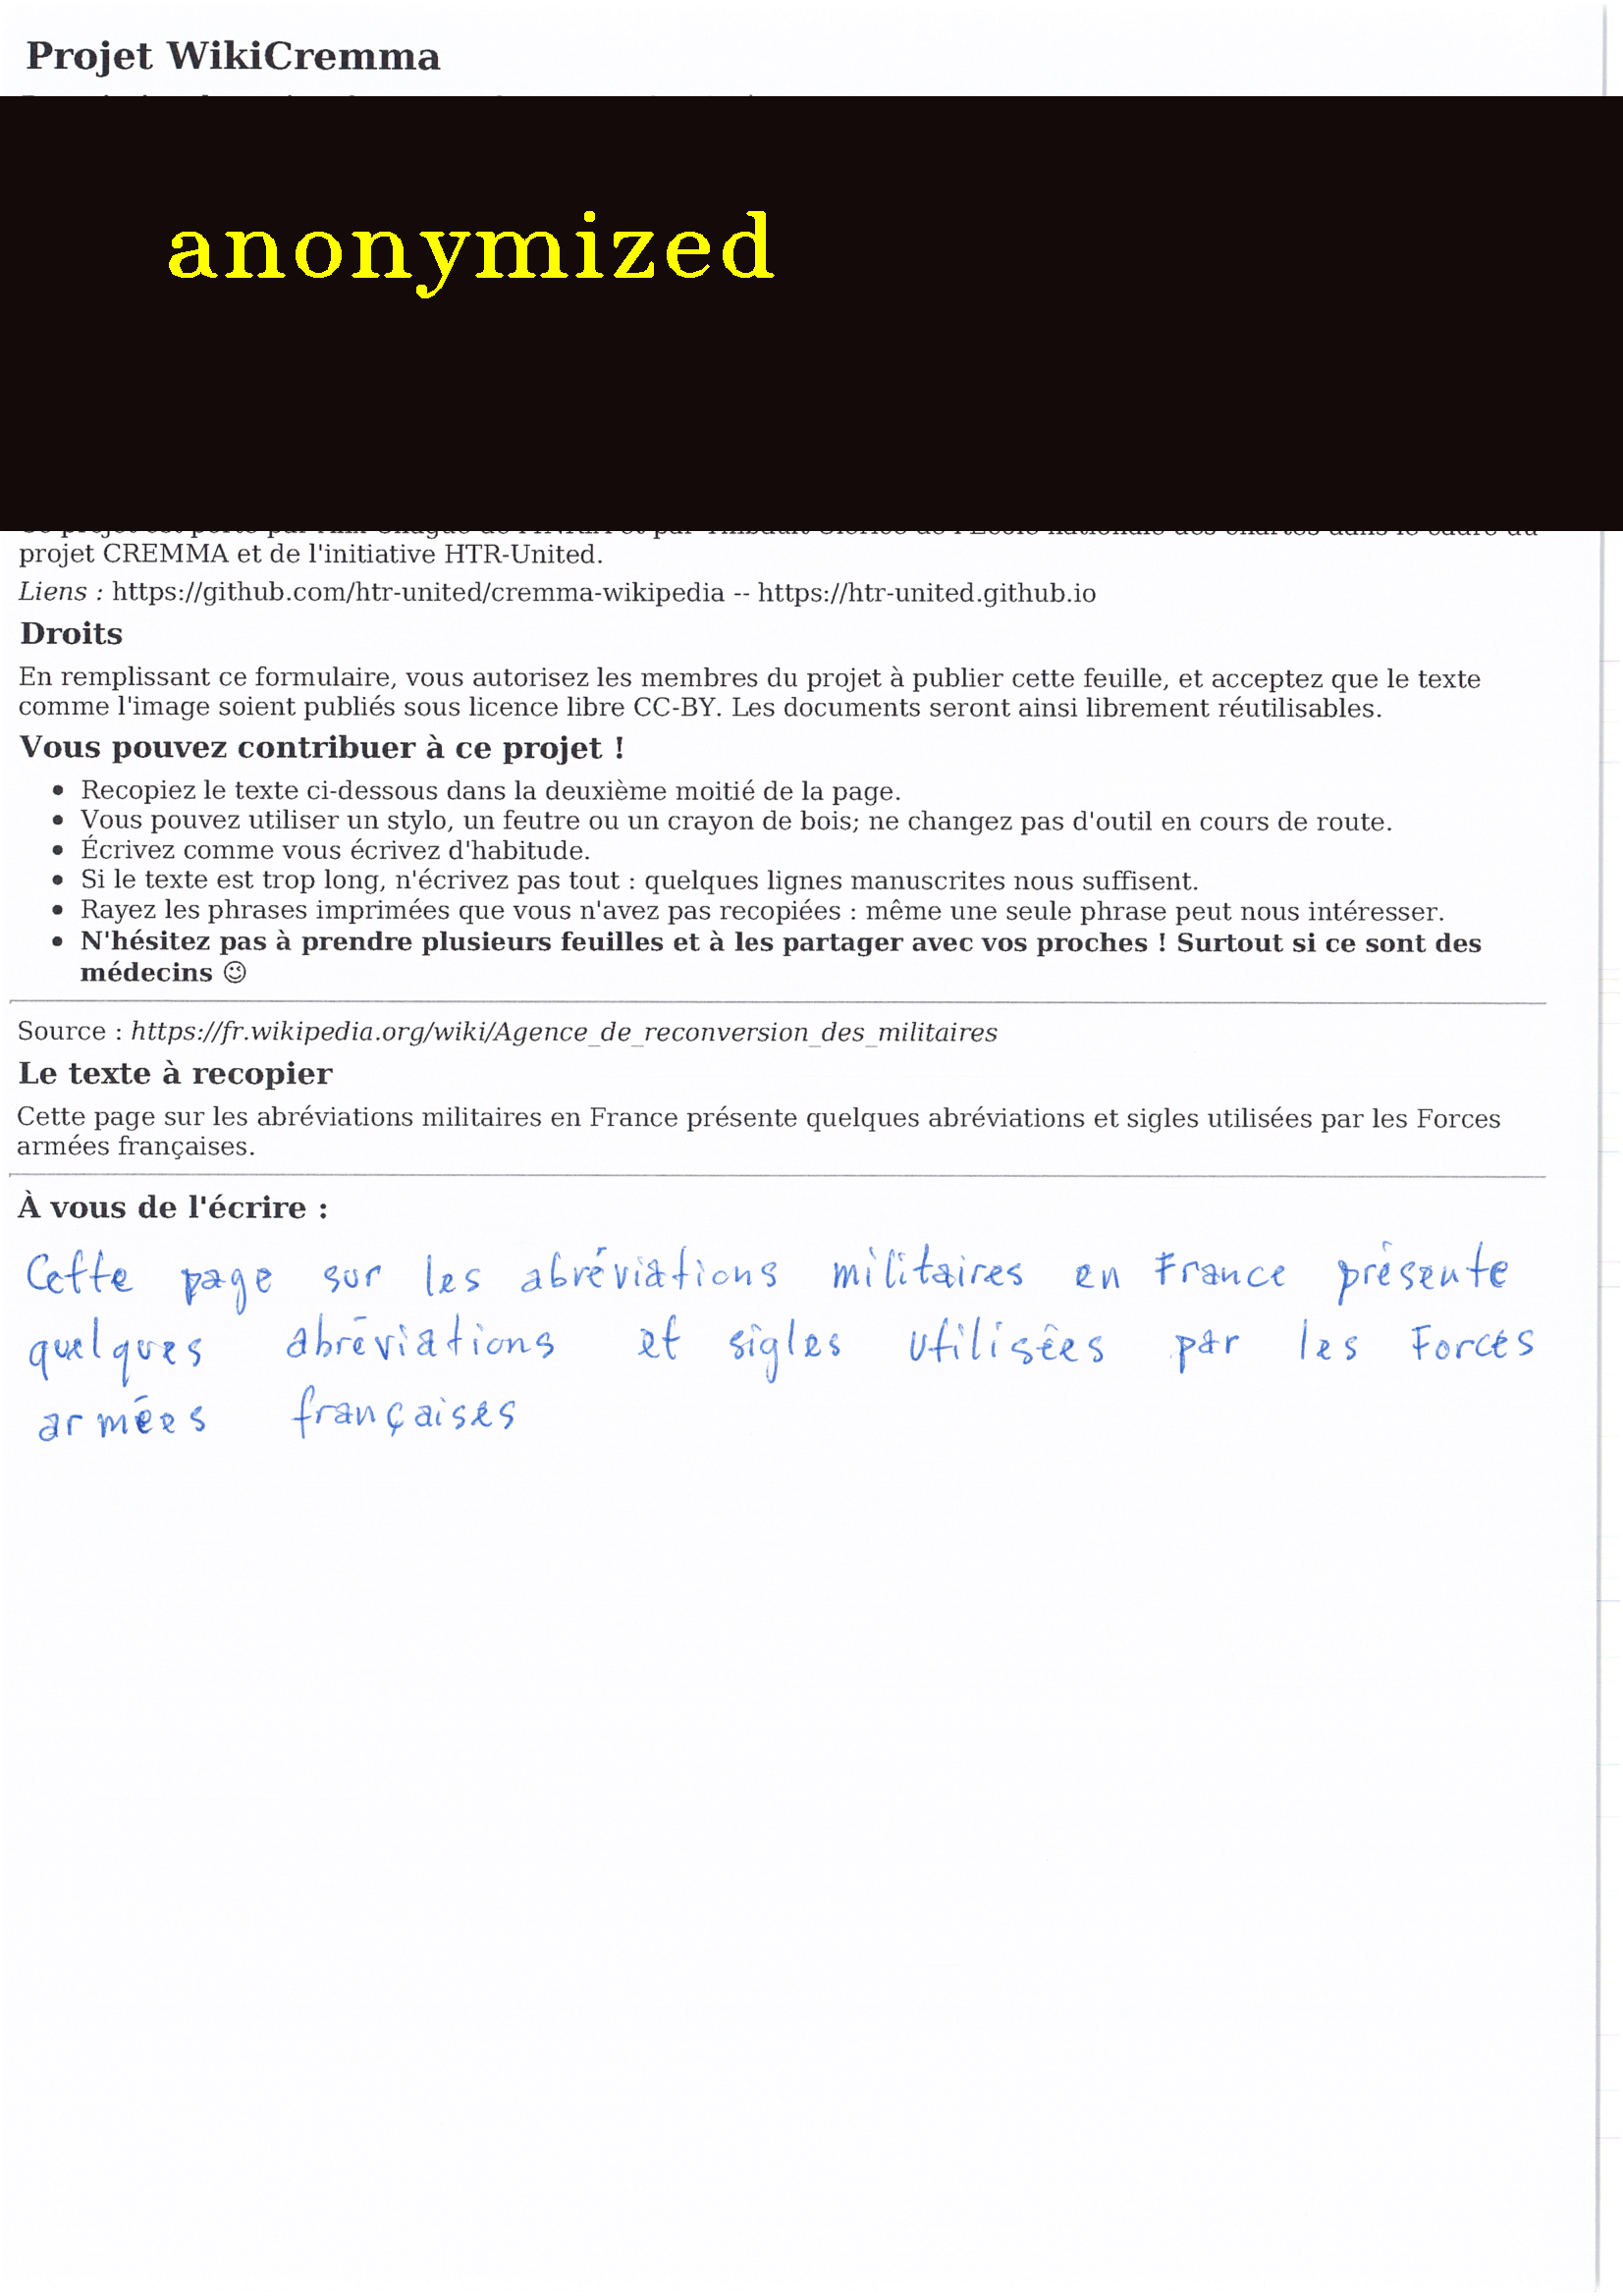 Projet WikiCremma
anonymized
projet CREMMA et de l'initiative HTR-United.
Liens : https://github.com/htr-united/cremma-wikipedia -- https://htr-united.github.io
Droits
En remplissant ce formulaire, vous autorisez les membres du projet à publier cette feuille, et acceptez que le texte
comme l'image soient publiés sous licence libre CC-BY. Les documents seront ainsi librement réutilisables.
Vous pouvez contribuer à ce projet !
• Recopiez le texte ci-dessous dans la deuxième moitié de la page.
• Vous pouvez utiliser un stylo, un feutre ou un crayon de bois; ne changez pas d'outil en cours de route.
• Écrivez comme vous écrivez d'habitude.
• Si le texte est trop long, n'écrivez pas tout : quelques lignes manuscrites nous suffisent.
• Rayez les phrases imprimées que vous n'avez pas recopiées : même une seule phrase peut nous intéresser.
• N'hésitez pas à prendre plusieurs feuilles et à les partager avec vos proches ! Surtout si ce sont des
médecins 😉
Source : https://fr.wikipedia.org/wiki/Agence_de_reconversion_des_militaires
Le texte à recopier
Cette page sur les abréviations militaires en France présente quelques abréviations et sigles utilisées par les Forces
armées françaises.
À vous de l'écrire :
Cette page sur les abréviations militaires en France présente
quelques abréviations et sigles utilisées par les Forces
armées françaises